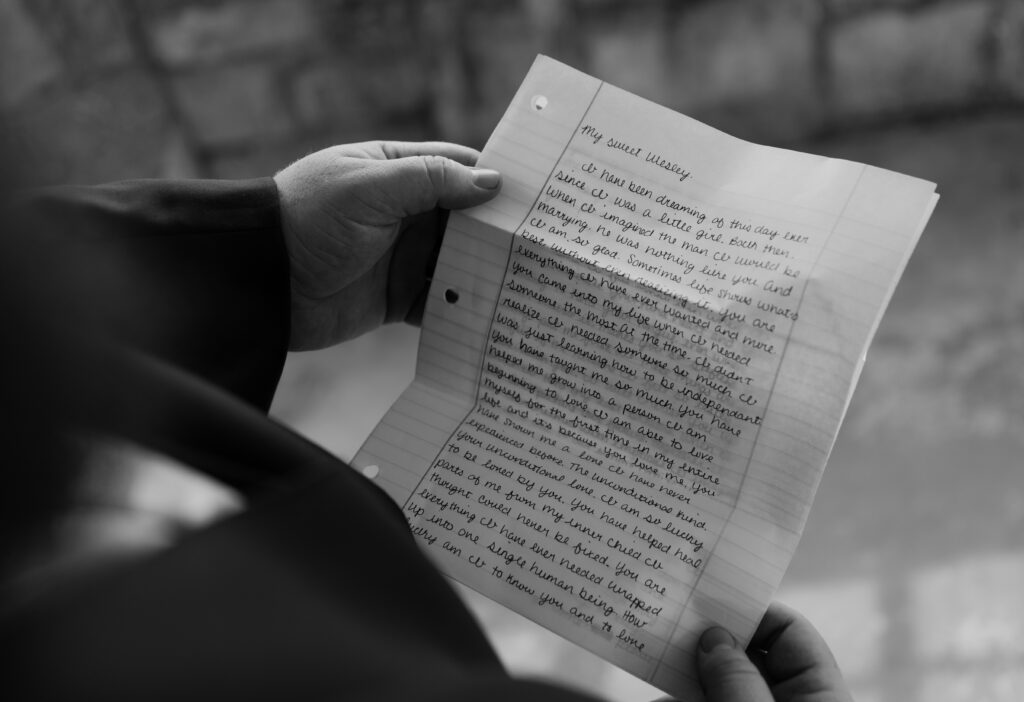 My sweet Wesley,
I have been dreaming of this day ever
since I was a little girl. Back then,
when I imagined the man I would be
marrying, he was nothing like you. And
I am so glad. Sometimes life shows what's
best without then realizing it. You are
everything I have ever wanted and more.
You came into my life when I needed
someone the most. At the time I didn't
realize I needed someone so much. I
was just learning how to be independant.
You have taught me so much. You have
helped me grow into a person I am
beginning to love. I am able to love
myself for the first time in my entire
life and it's because you love me. You
have shown me a love I have never
experienced before. The unconditional kind.
Your unconditional love. I am so lucky
to be loved by you. You have helped heal
parts of me from my inner child I
thought could never be fixed. You are
everything I have ever needed wrapped
up into one single human being. How
lucky am I to know you and to love